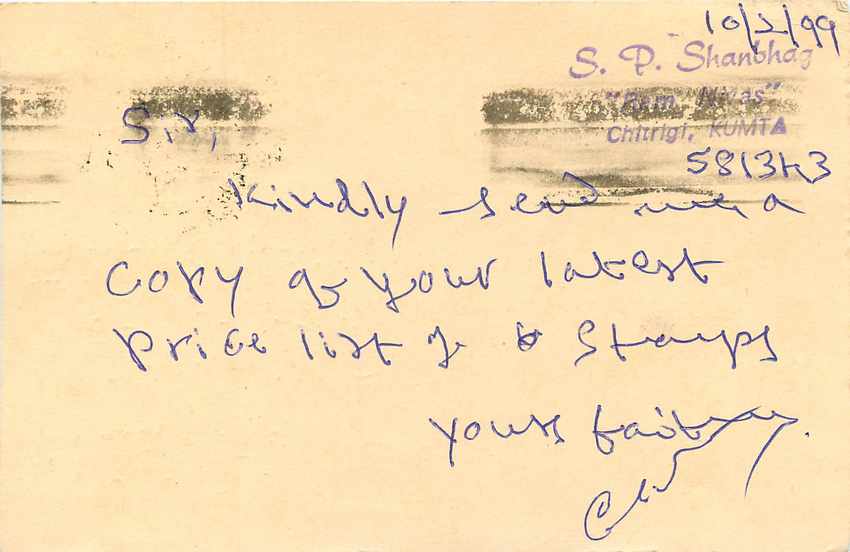 10/2/99
S. P. Shanbhag
"Ram Nivas"
Chitrigi, KUMTA
581343
Sir,
Kindly send me a
copy of your latest
price list of stamps
yours faith